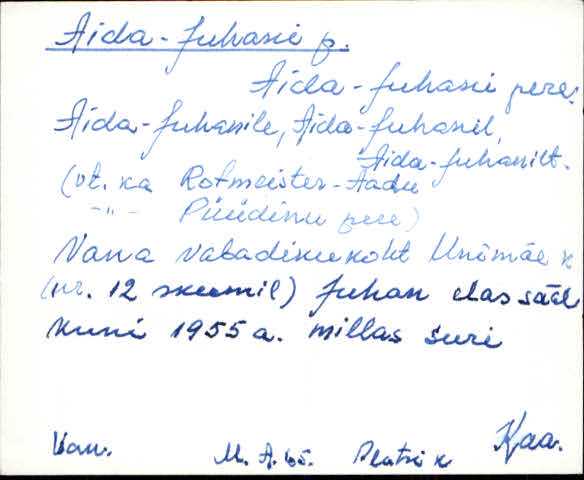 Aida-Juhani p.
Aida-Juhani pere.
Aida-Juhanile, Aida-Juhanil,
Aida-Juhanilt.
(vt. ka Rotmeister-Aadu
-"- Püüdinu pere)
Vana vabadiku koht Unimäe k
(nr. 12 skeemil) Juhan elas sääl
kuni 1955 a. millas suri
Van. M. A. Kaa.